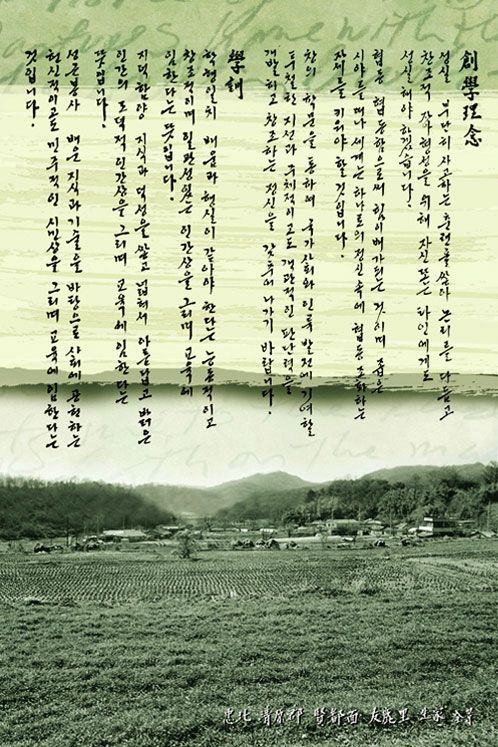 創學理念
성실 부단히 사고하는 훈련을 쌓아 논리를 다듬고
창조적 자아형성을 위해 자신 또는 타인에게도
성실해야 하겠습니다.
협동 협동함으로써 힘이 배가 되는 것이며 좁은
시야를 떠나 세계는 하나로의 정신 속에 협동 조화하는
자세를 키워야 할 것입니다.
창의 학문을 통하여 국가사회와 인류발전에 기여할
투철한 지선과 주체적이고도 객관적인 판단력을
개발하고 창조하는 정신을 갖추어 나가기 바랍니다.
學訓
학행일치 배움과 현실이 같아야 한다는 능동적이고
창조적이며 일관성있는 인간상을 그리며 교육에
임한다는 뜻입니다.
지덕함양 지식과 덕성을 쌓고 넓혀서 아름답고 밝은
인간의 도덕적 인간상을 그리며 교육에 임한다는
뜻입니다.
성은봉사 배운 지식과 기술을 바탕으로 사회에 공헌하는
헌신적이고도 민주적인 시민상을 그리며 교육에 임한다는
것입니다.
忠北 清原郡 賢都面 友鹿里 生家 全景